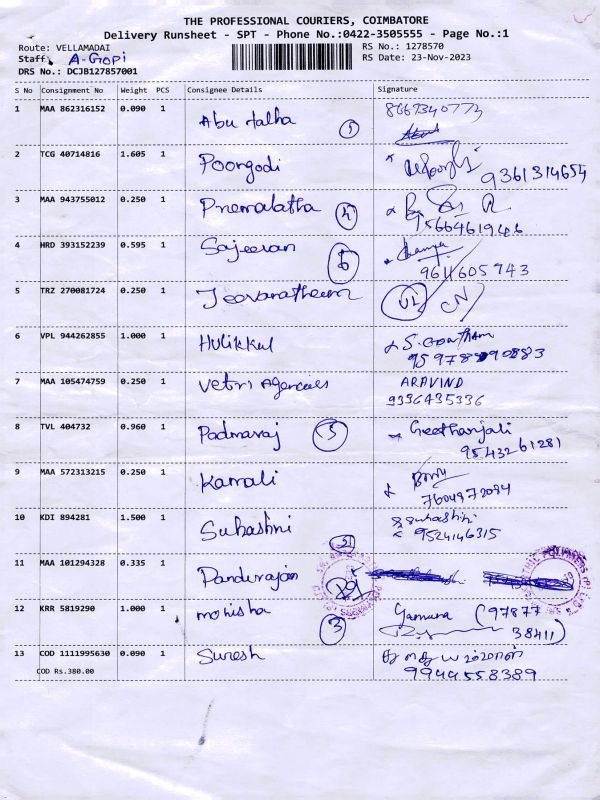 THE PROFESSIONAL COURIERS, COIMBATORE
Delivery Runsheet - SPT - Phone No.:0422-3505555 - Page No.:1
Route: VELLAMADAI RS No.: 1278570
Staff: A-Gopi RS Date: 23-Nov-2023
DRS No.: DCJB127857001
S No Consignment No Weight PCS Consignee Details Signature
1 MAA 862316152 0.090 1 Abu talha
2 TCG 40714816 1.605 1 Poongodi 9361314654
3 MAA 943755012 0.250 1 Premalatha 4
9566461946
4 HRD 393152239 0.595 1 Sajeevan 6
9611605943
5 TRZ 270081724 0.250 1
6 VPL 944262855 1.000 1 Hulikkul S. Gowtham
7 MAA 105474759 0.250 1 Vetri Agencies ARAVIND
9336435336
8 TVL 404732 0.960 1 Padmaraj 5 Geethanjali
9543261281
9 MAA 572313215 0.250 1 Kamali
7604972094
10 KDI 894281 1.500 1 Suhashni Suhashini
9524146315
11 MAA 101294328 0.335 1 Pandurajan
12 KRR 5819290 1.000 1 Mohisha 3 Yamuna (97877
38411)
13 COD 1111995630 0.090 1 Suresh
COD Rs.380.00 9944558389